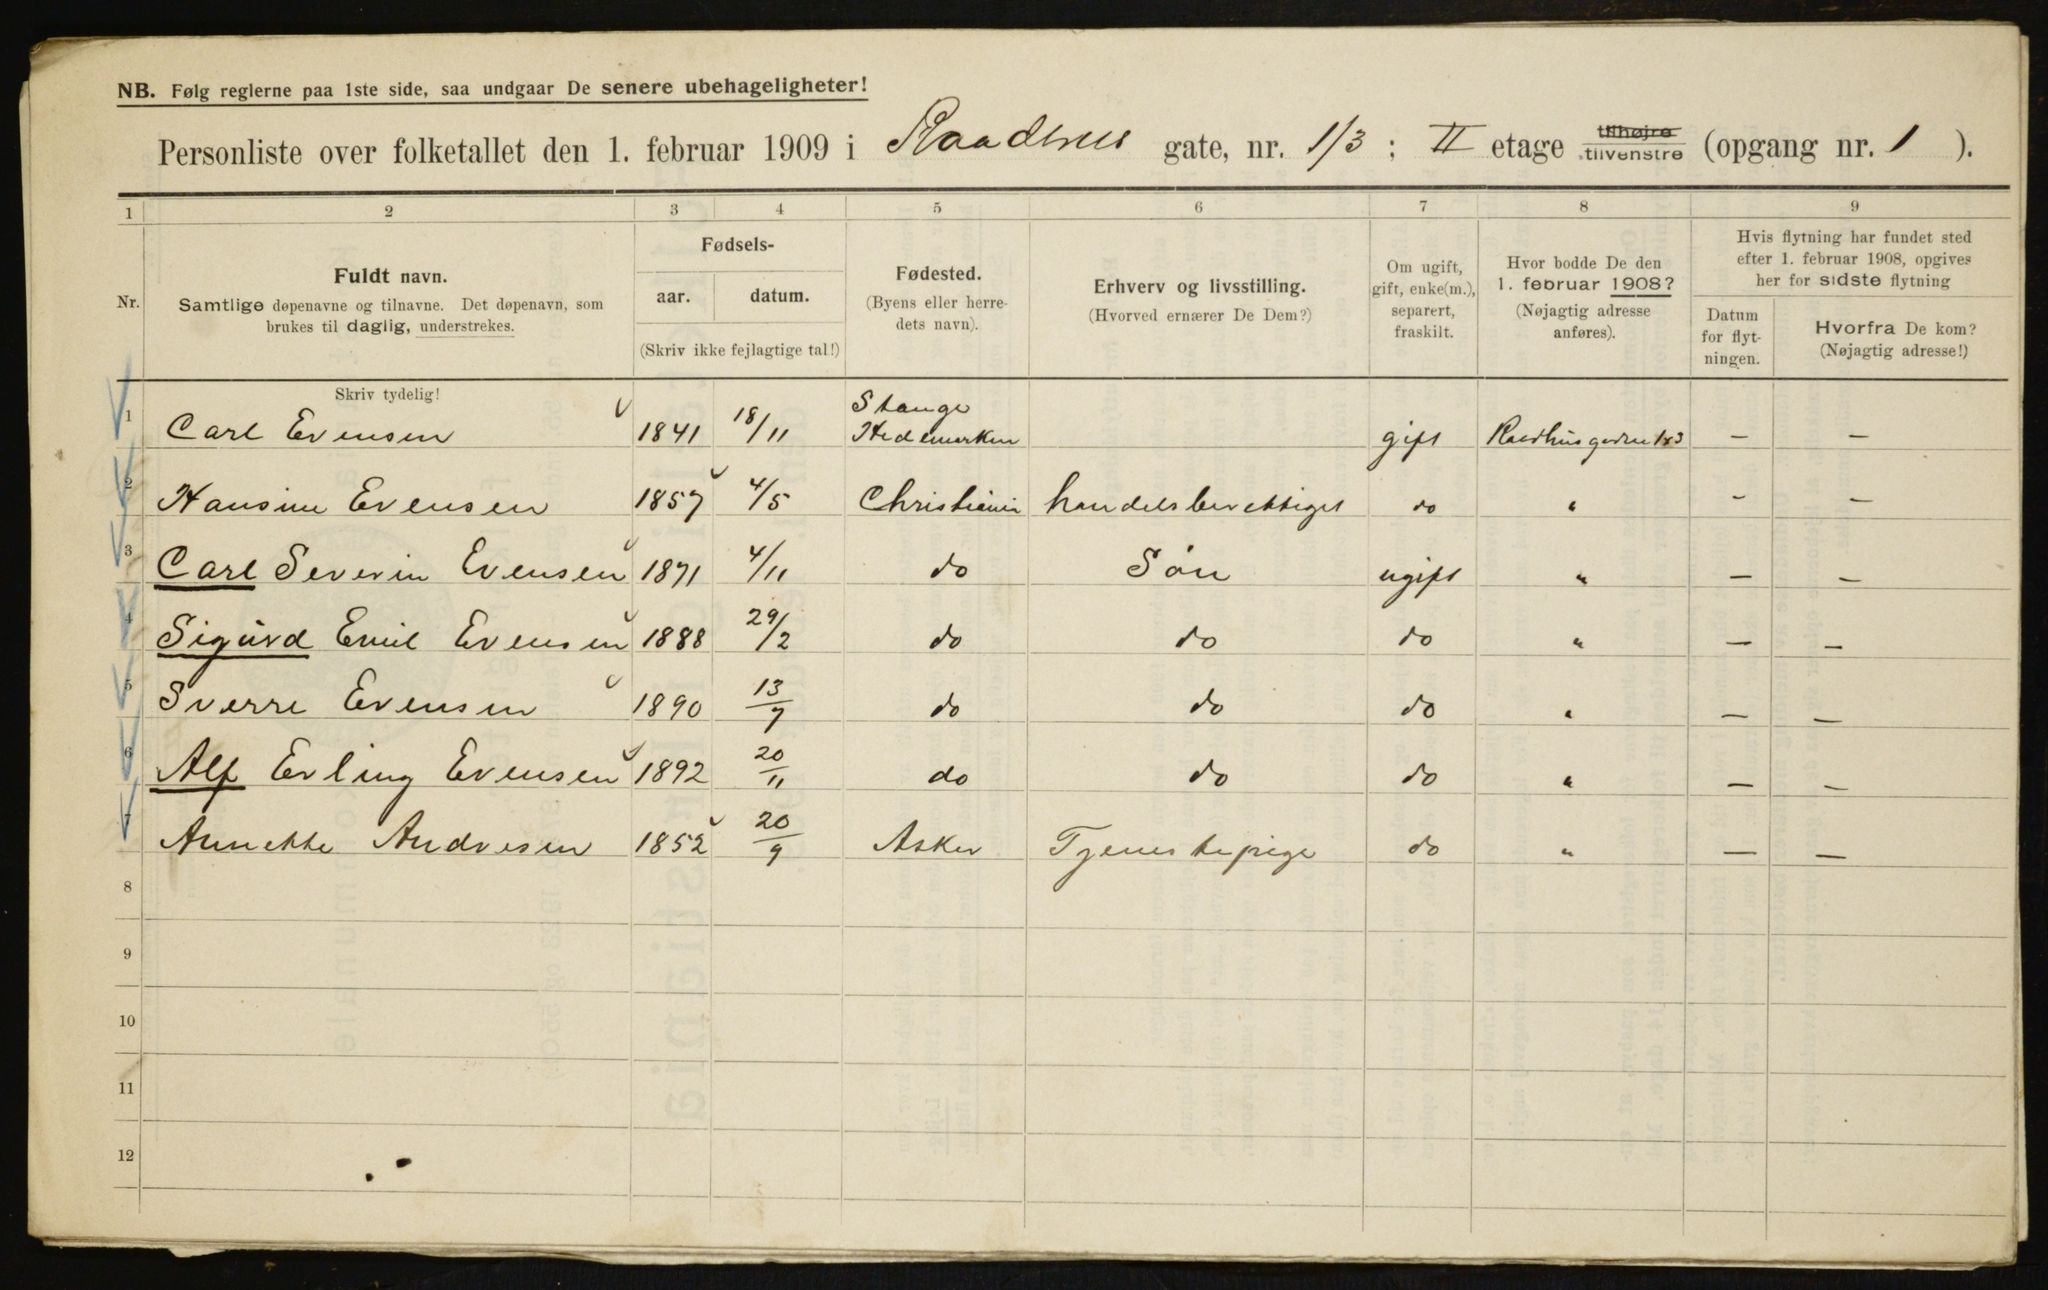 NB. Følg reglerne paa 1ste side, saa undgaar De senere ubehageligheter!
Personliste over folketallet den 1. februar 1909 i Raadhus gate, nr. 1/3 ; II etage tilhøjre tilvenstre (opgang nr. 1 ).
1 2 3 4 5 6 7 8 9
Nr.
Fuldt navn.
Samtlige døpenavne og tilnavne. Det døpenavn, som
brukes til daglig, understrekes.
Fødsels-
aar. datum.
(Skriv ikke fejlagtige tal!)
Fødested.
(Byens eller herre-
dets navn).
Erhverv og livsstilling.
(Hvorved ernærer De Dem?)
Om ugift,
gift, enke(m.),
separert,
fraskilt.
Hvor bodde De den
1. februar 1908?
(Nøjagtig adresse
anføres).
Hvis flytning har fundet sted
efter 1. februar 1908, opgives
her for sidste flytning
Datum
for flyt-
ningen.
Hvorfra De kom?
(Nøjagtig adresse!)
Skriv tydelig!
1 Carl Evensen 1841 18/11 Stange Hedemarken gift Raadhusgaden 1&3 — —
2 Hansine Evensen 1857 4/5 Christiania handelsberettiget do " — —
3 Carl Severin Evensen 1871 4/11 do Søn ugift " — —
4 Sigurd Emil Evensen 1888 29/2 do do do " — —
5 Sverre Evensen 1890 13/7 do do do " — —
6 Alf Erling Evensen 1892 20/11 do do do " — —
7 Annette Andresen 1852 20/9 Asker Tjenestepige do " — —
8
9
10
11
12